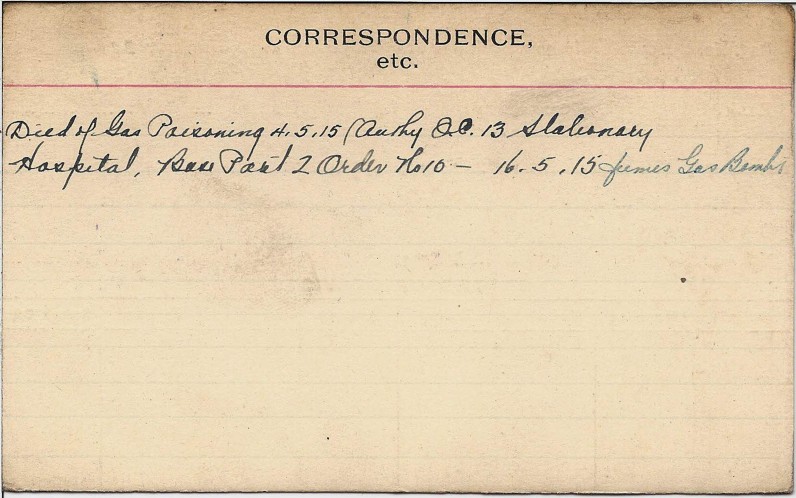 CORRESPONDENCE,
etc.
Died of Gas Poisoning 4.5.15 (Authy O.C. 13 Stationary
Hospital, Base Part 2 Order No 10 – 16.5.15 fumes Gas Bombs